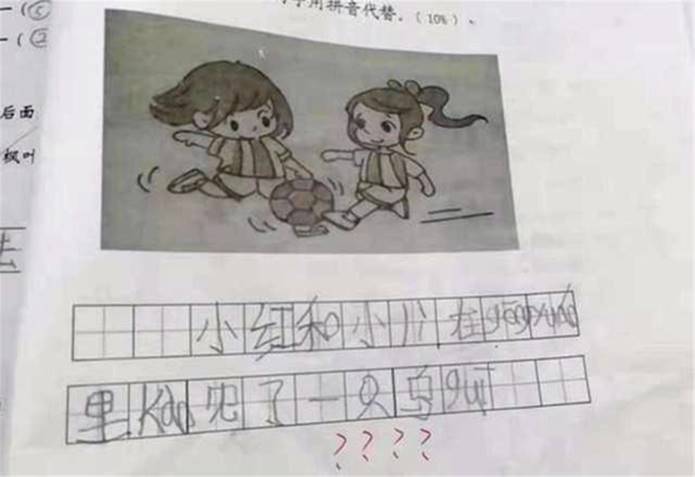 字用拼音代替。（10%）
（⑤
（②
后面
枫叶
小红和小 在gōngyuán
里Kàn见了一只乌guī
????